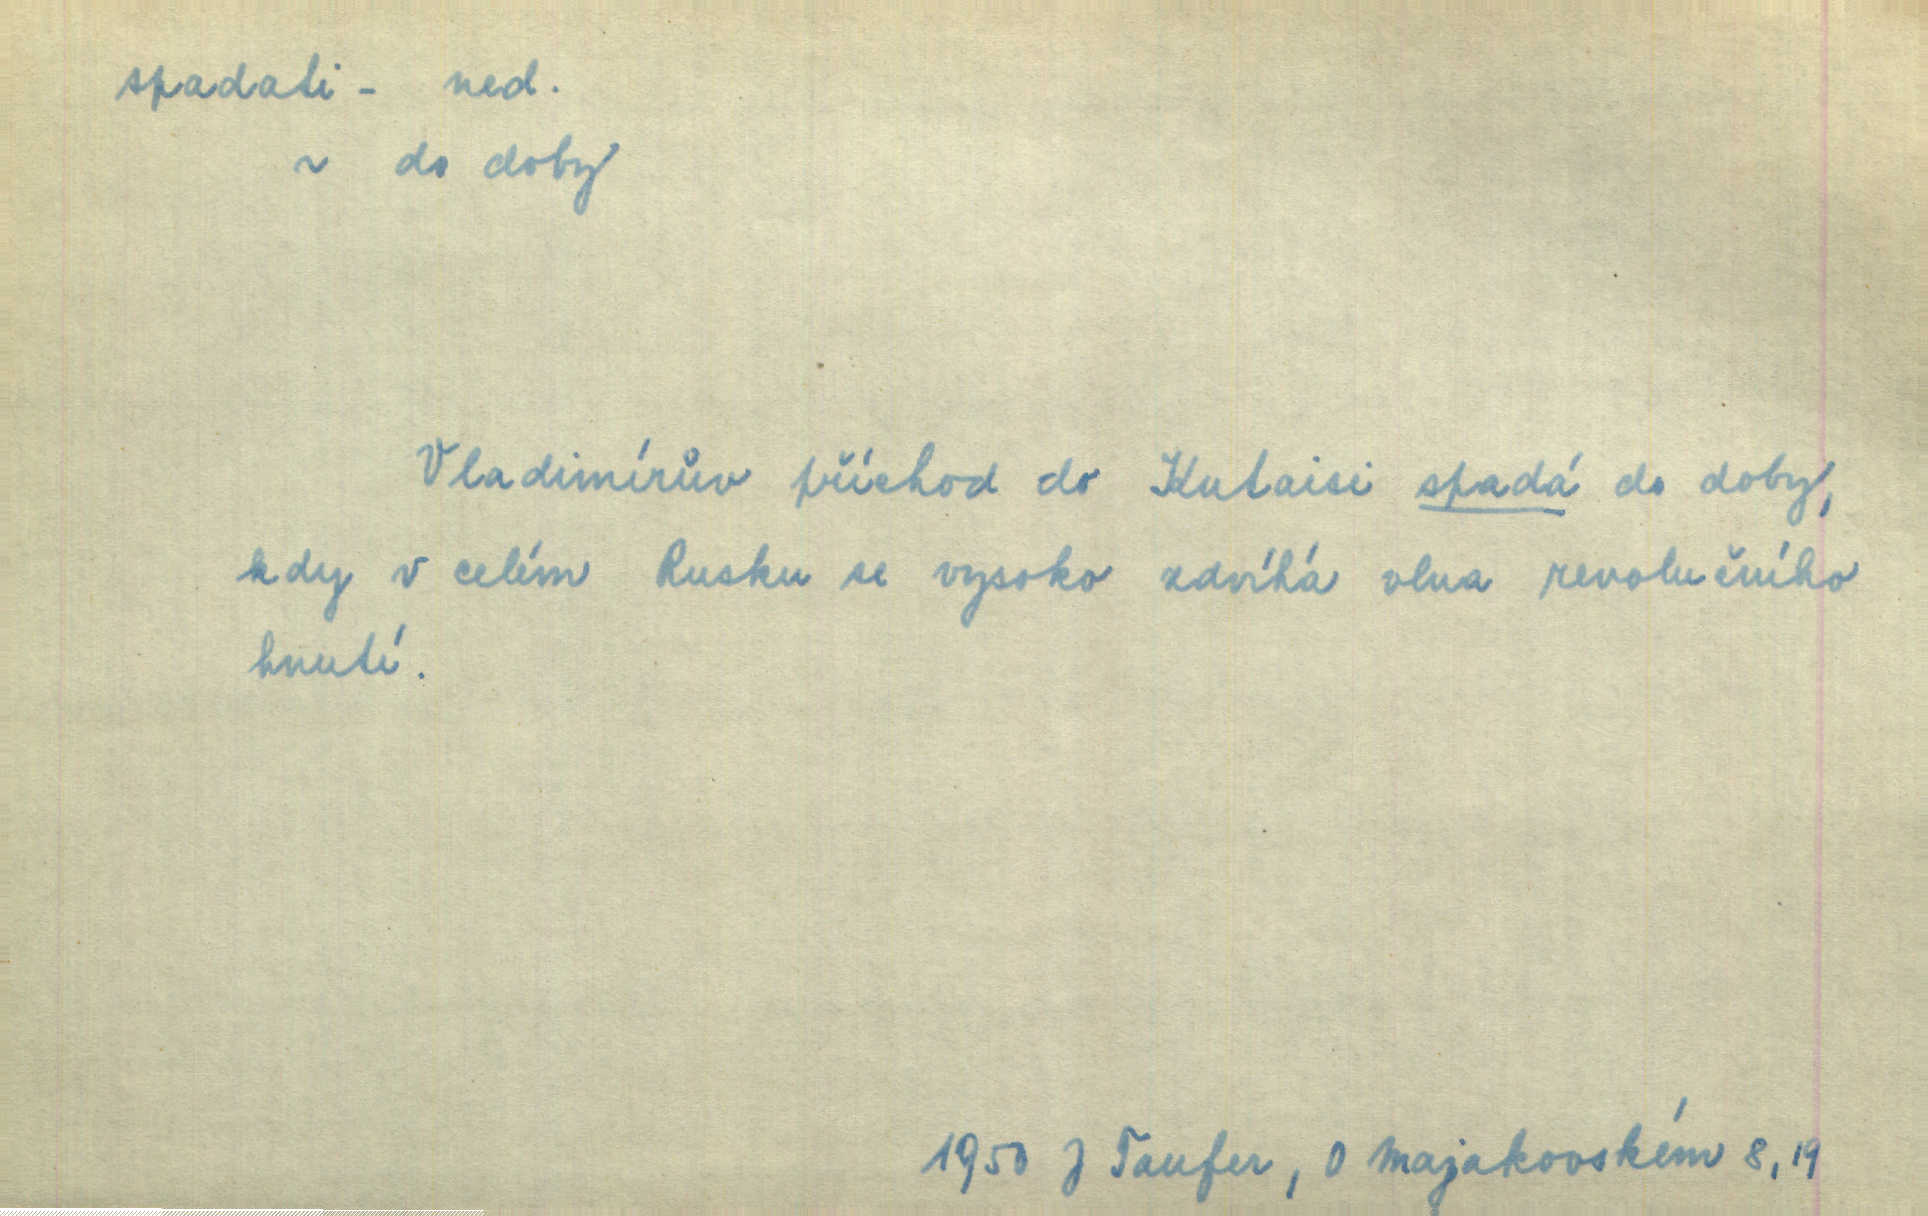 spadati - ned.
~ do doby
Vladimírův příchod do Kutaisi spadá do doby,
kdy v celém Rusku se vysoko zdvíhá vlna revolučního
hnutí.
1950 J Taufer, O Majakovském 8,19